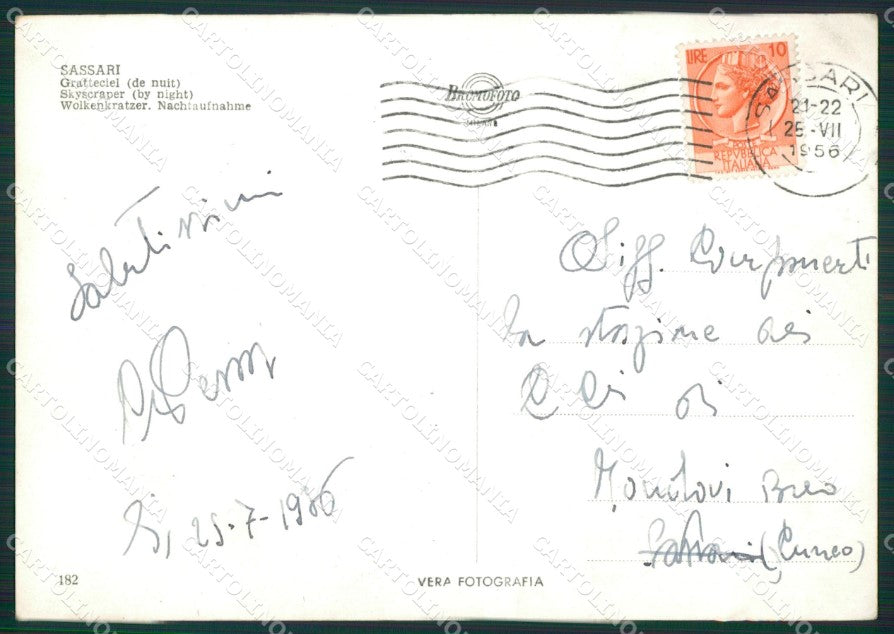 SASSARI
Gratteciel (de nuit)
Skyscraper (by night)
Wolkenkratzer. Nachtaufnahme
BROMOFOTO
MILANO
LIRE 10
REPVBBLICA
ITALIANA
SASSARI
21-22
25-VII
1956
Salutissimi
S, 25-7-1956
Alla stazione dei
CC di
Mondovì Breo
(Cuneo)
182
VERA FOTOGRAFIA
CARTOLINOMANIA